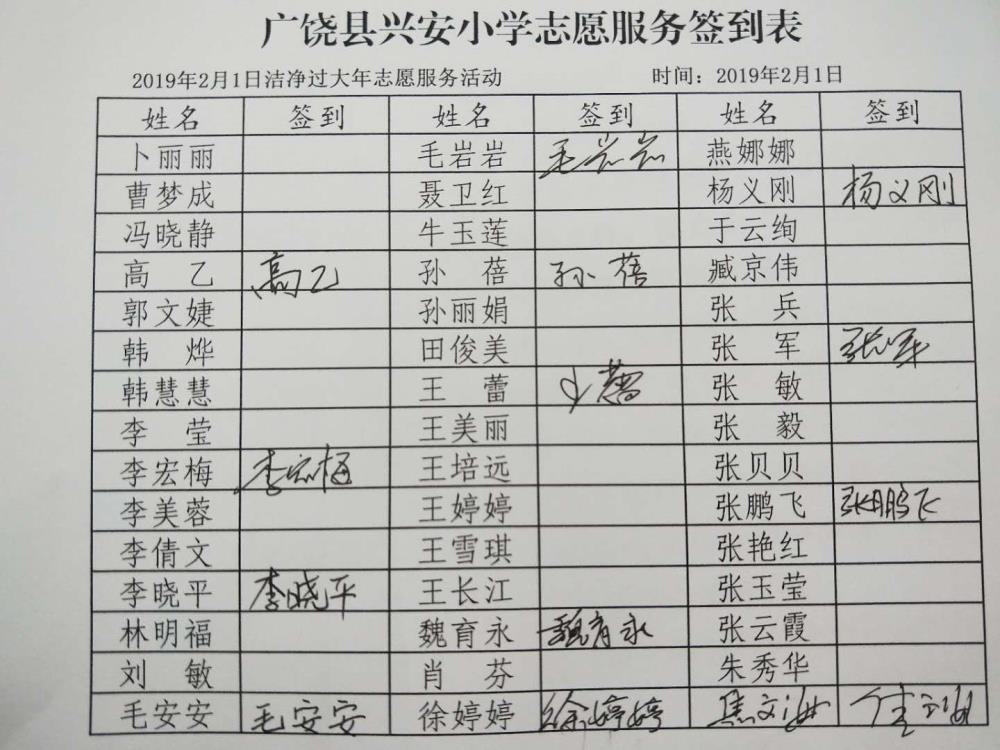 广饶县兴安小学志愿服务签到表
2019年2月1日洁净过大年志愿服务活动 时间：2019年2月1日
姓名 签到 姓名 签到 姓名 签到
卜丽丽 毛岩岩 毛岩岩 燕娜娜
曹梦成 聂卫红 杨义刚 杨义刚
冯晓静 牛玉莲 于云绚
高乙 高乙 孙蓓 孙蓓 臧京伟
郭文婕 孙丽娟 张兵
韩烨 田俊美 张军 张军
韩慧慧 王蕾 王蕾 张敏
李莹 王美丽 张毅
李宏梅 李宏梅 王培远 张贝贝
李美蓉 王婷婷 张鹏飞 张鹏飞
李倩文 王雪琪 张艳红
李晓平 李晓平 王长江 张玉莹
林明福 魏育永 魏育永 张云霞
刘敏 肖芬 朱秀华
毛安安 毛安安 徐婷婷 徐婷婷 焦文海